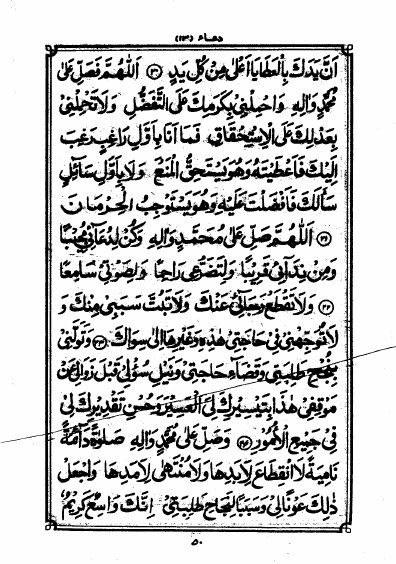 دعاء (۱۳)
اَنَّ يَدَكَ بِالْعَطَايَا اَعْلىٰ مِنْ كُلِّ يَدٍ (۲۱) اَللّٰهُمَّ فَصَلِّ عَلىٰ
مُحَمَّدٍ وَاٰلِهِ وَاحْمِلْنِىْ بِكَرَمِكَ عَلَى التَّفَضُّلِ وَلَا تَحْمِلْنِىْ
بِعَدْلِكَ عَلَى الْاِسْتِحْقَاقِ فَمَا اَنَا بِاَوَّلِ رَاغِبٍ رَغِبَ
اِلَيْكَ فَاَعْطَيْتَهُ وَهُوَ يَسْتَحِقُّ الْمَنْعَ وَلَا بِاَوَّلِ سَآئِلٍ
سَاَلَكَ فَاَفْضَلْتَ عَلَيْهِ وَهُوَ يَسْتَوْجِبُ الْحِرْمَانَ
(۲۲) اَللّٰهُمَّ صَلِّ عَلىٰ مُحَمَّدٍ وَاٰلِهِ وَكُنْ لِدُعَآئِىْ مُجِيْبًا
وَمِنْ نِدَآئِىْ قَرِيْبًا وَلِتَضَرُّعِىْ رَاحِمًا وَلِصَوْتِىْ سَامِعًا
(۲۳) وَلَا تَقْطَعْ رَجَآئِىْ عَنْكَ وَلَا تَبُتَّ سَبَبِىْ مِنْكَ وَ
لَا تُوَجِّهْنِىْ فِىْ حَاجَتِىْ هٰذِهِ وَغَيْرِهَا اِلىٰ سِوَاكَ (۲۴) وَتَوَلَّنِىْ
بِنُجْحِ طَلِبَتِىْ وَقَضَآءِ حَاجَتِىْ وَنَيْلِ سُؤْلِىْ قَبْلَ زَوَالِىْ عَنْ
مَوْقِفِىْ هٰذَا بِتَيْسِيْرِكَ لِىَ الْعَسِيْرَ وَحُسْنِ تَقْدِيْرِكَ لِىْ
فِىْ جَمِيْعِ الْاُمُوْرِ (۲۵) وَصَلِّ عَلىٰ مُحَمَّدٍ وَاٰلِهِ صَلوٰةً دَآئِمَةً
نَامِيَةً لَا انْقِطَاعَ لِاَبَدِهَا وَلَا مُنْتَهىٰ لِاَمَدِهَا وَاجْعَلْ
ذٰلِكَ عَوْنًا لِىْ وَسَبَبًا لِنَجَاحِ طَلِبَتِىْ اِنَّكَ وَاسِعٌ كَرِيْمٌ
۵۰